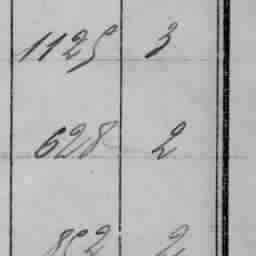 1125 3
628 2
852 2